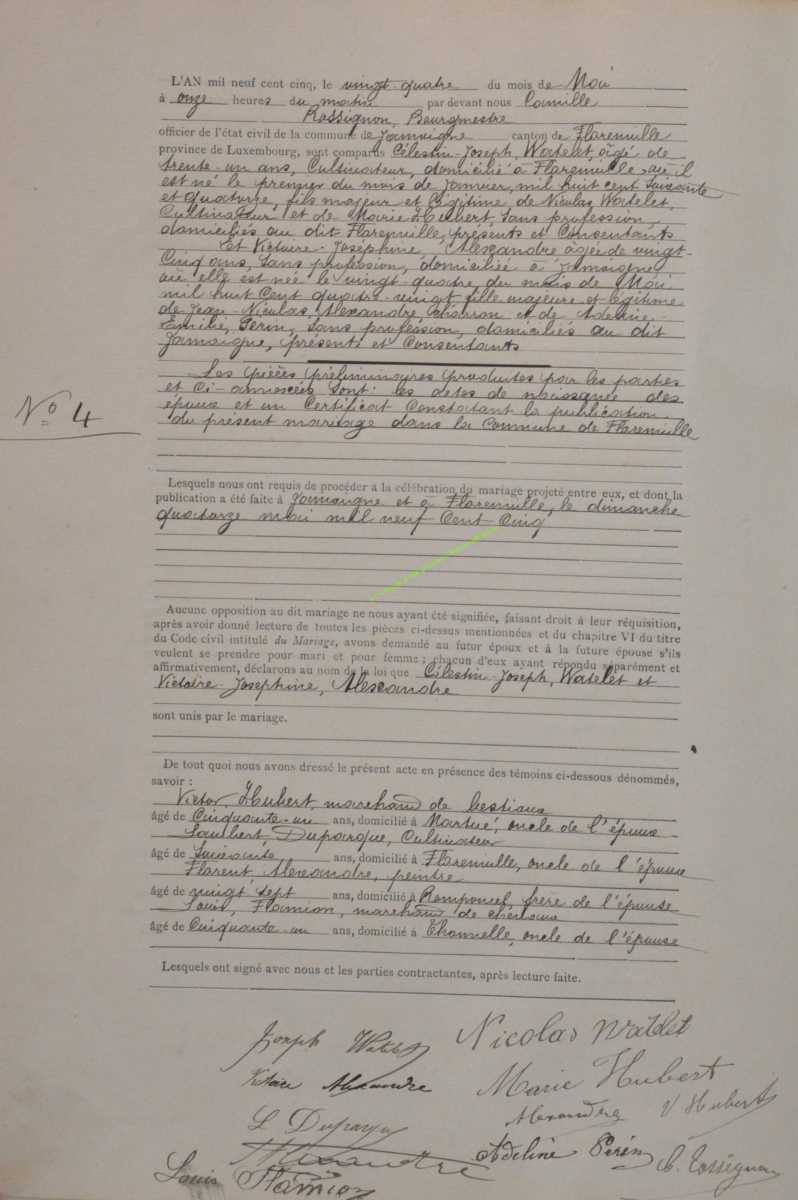 L'AN mil neuf cent cinq, le vingt-quatre du mois de Mai
à onze heures du matin par devant nous Camille
Rossignon, Bourgmestre
officier de l'état civil de la commune de Jamoigne canton de Florenville
province de Luxembourg, sont comparus Célestin-Joseph, Watelet, âgé de
trente-un ans, Cultivateur, domicilié à Florenville, où il
est né le premier du mois de Janvier, mil huit cent soixante
et quatorze, fils majeur et légitime de Nicolas Watelet,
Cultivateur et de Marie Hubert, sans profession,
domiciliés au dit Florenville, présents et Consentants
Et Victoire-Joséphine, Alexandre âgée de vingt-
Cinq ans, sans profession, domiciliée à Jamoigne,
où elle est née le vingt quatre du mois de Mai
mil huit Cent quatre-vingt fille majeure et légitime
de Jean-Nicolas, Alexandre, Charron et de Adeline-
Emilie, Perin, sans profession, domiciliés au dit
Jamoigne, présents et Consentants
Les pièces préliminaires produites par les parties
et Ci-annexées sont: les actes de naissance des
N° 4
époux et un Certificat Constatant la publication
du présent mariage dans la Commune de Florenville
Lesquels nous ont requis de procéder à la célébration du mariage projeté entre eux, et dont la
publication a été faite à Jamoigne et à Florenville, le dimanche
quatorze mai mil neuf Cent Cinq
Aucune opposition au dit mariage ne nous ayant été signifiée, faisant droit à leur réquisition,
après avoir donné lecture de toutes les pièces ci-dessus mentionnées et du chapitre VI du titre
du Code civil intitulé du Mariage, avons demandé au futur époux et à la future épouse s'ils
veulent se prendre pour mari et pour femme ; chacun d'eux ayant répondu séparément et
affirmativement, déclarons au nom de la loi que Célestin-Joseph, Watelet et
Victoire-Joséphine, Alexandre
sont unis par le mariage.
De tout quoi nous avons dressé le présent acte en présence des témoins ci-dessous dénommés,
savoir :
Victor, Hubert, marchand de bestiaux
âgé de Cinquante-un ans, domicilié à Martué, oncle de l'époux
Lambert Duparque, Cultivateur
âgé de Soixante ans, domicilié à Florenville, oncle de l'épouse
Florent Alexandre, peintre
âgé de vingt sept ans, domicilié à Remponcel, frère de l'épouse
Louis, Flamion, marchand de chevaux
âgé de Cinquante-un ans, domicilié à Chameleux, oncle de l'épouse
Lesquels ont signé avec nous et les parties contractantes, après lecture faite.
Joseph Watelet Nicolas Watelet
Victoire Alexandre Marie Hubert
Alexandre V Hubert
L Duparque
Alexandre Adeline Perin C. Rossignon
Louis Flamion